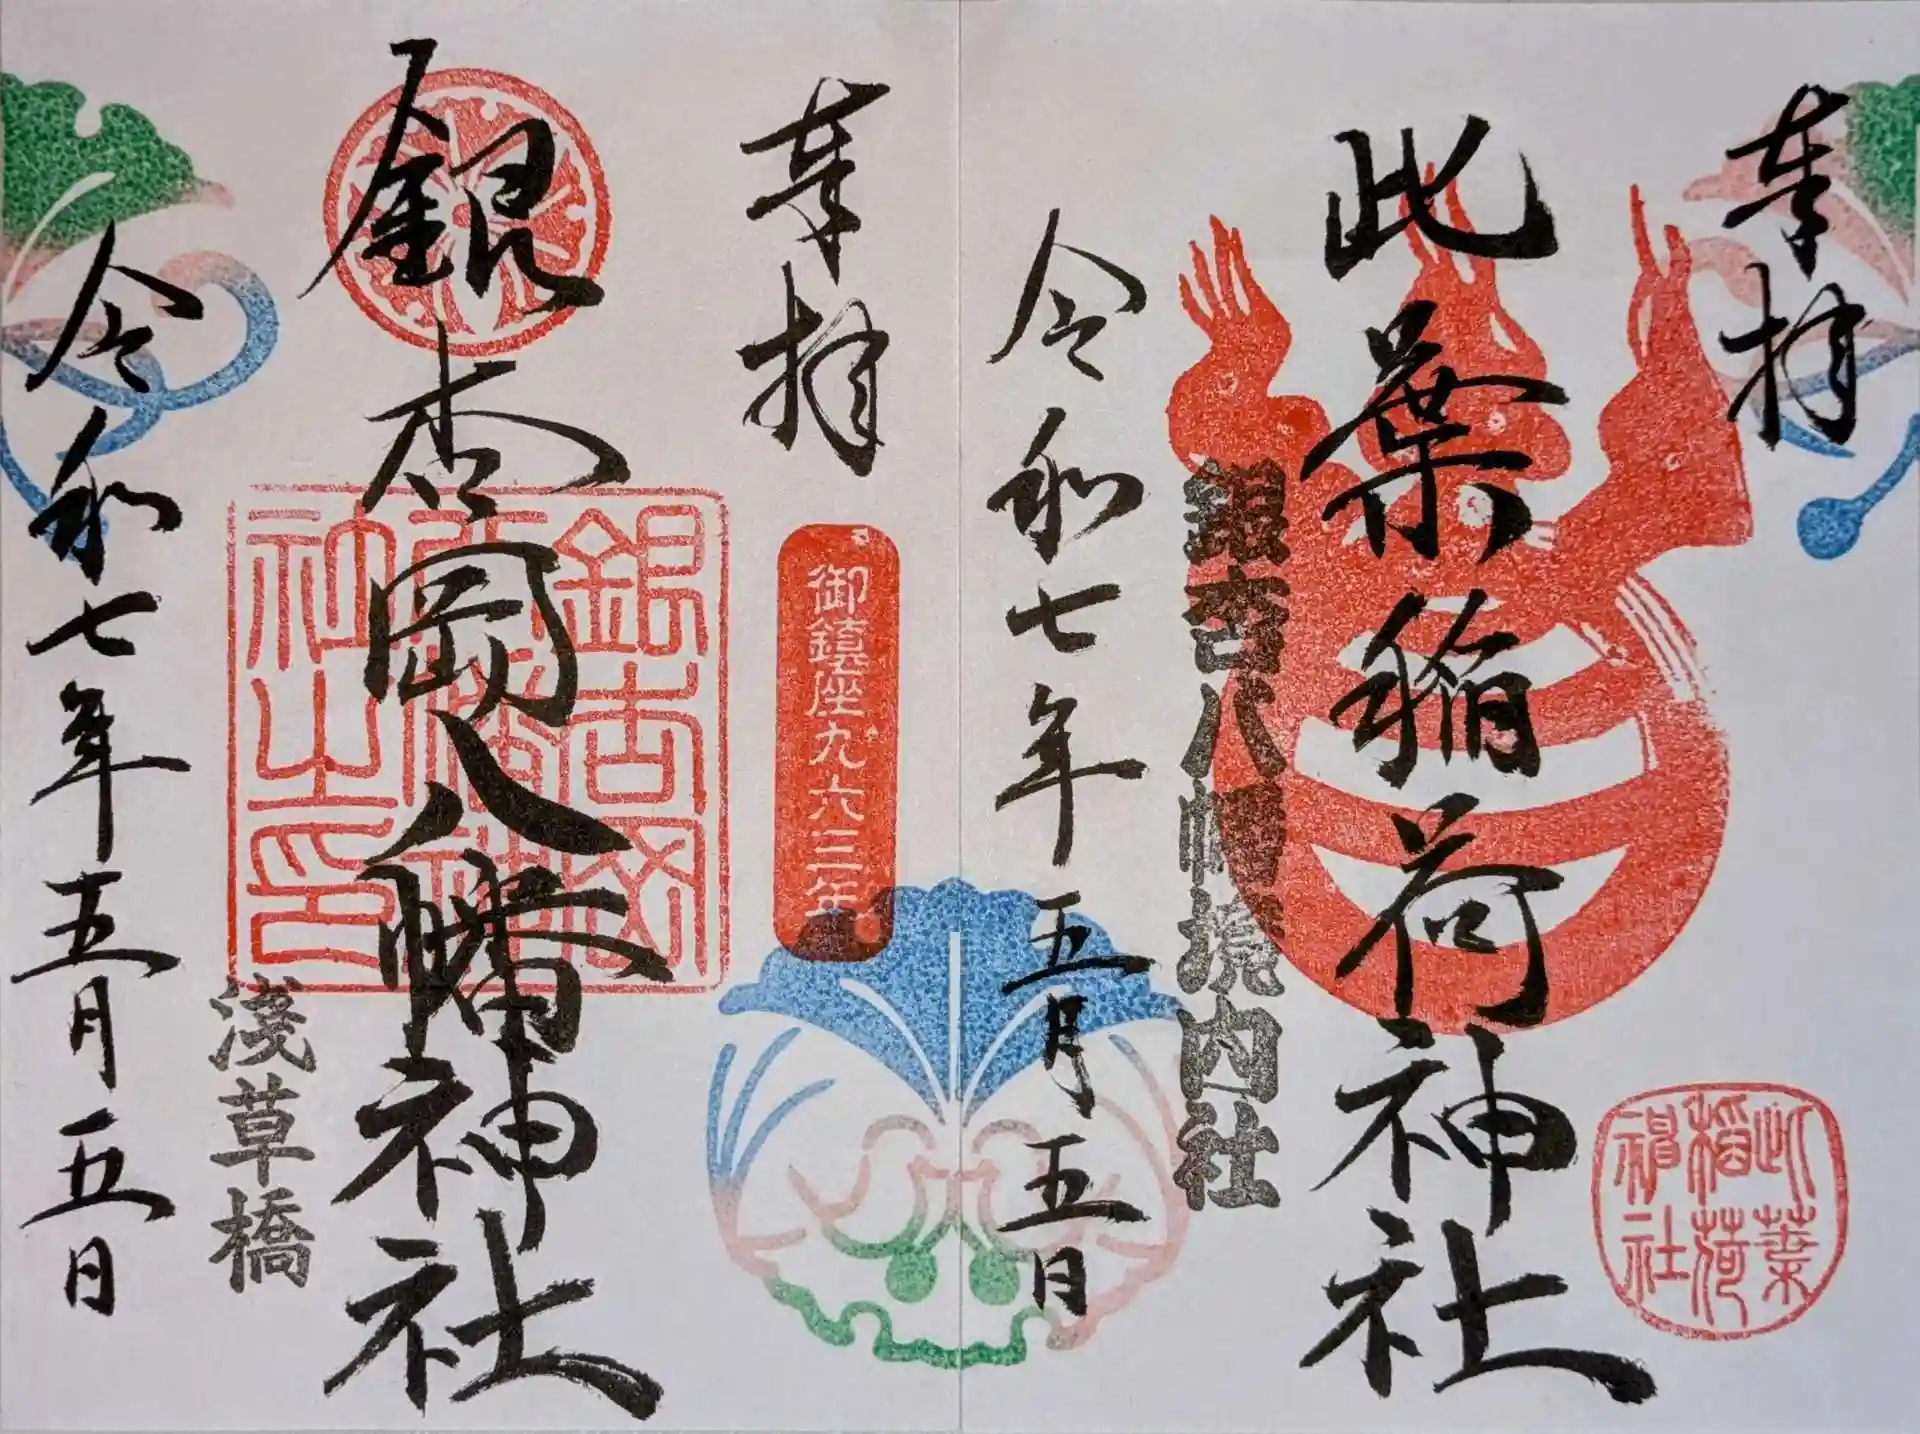 奉拝
此葉稲荷神社
此葉稲荷神社
銀杏八幡境内社
令和七年五月五日
奉拝
御鎮座九六三年
銀杏岡八幡神社
銀杏岡八幡神社之印
淺草橋
令和七年五月五日